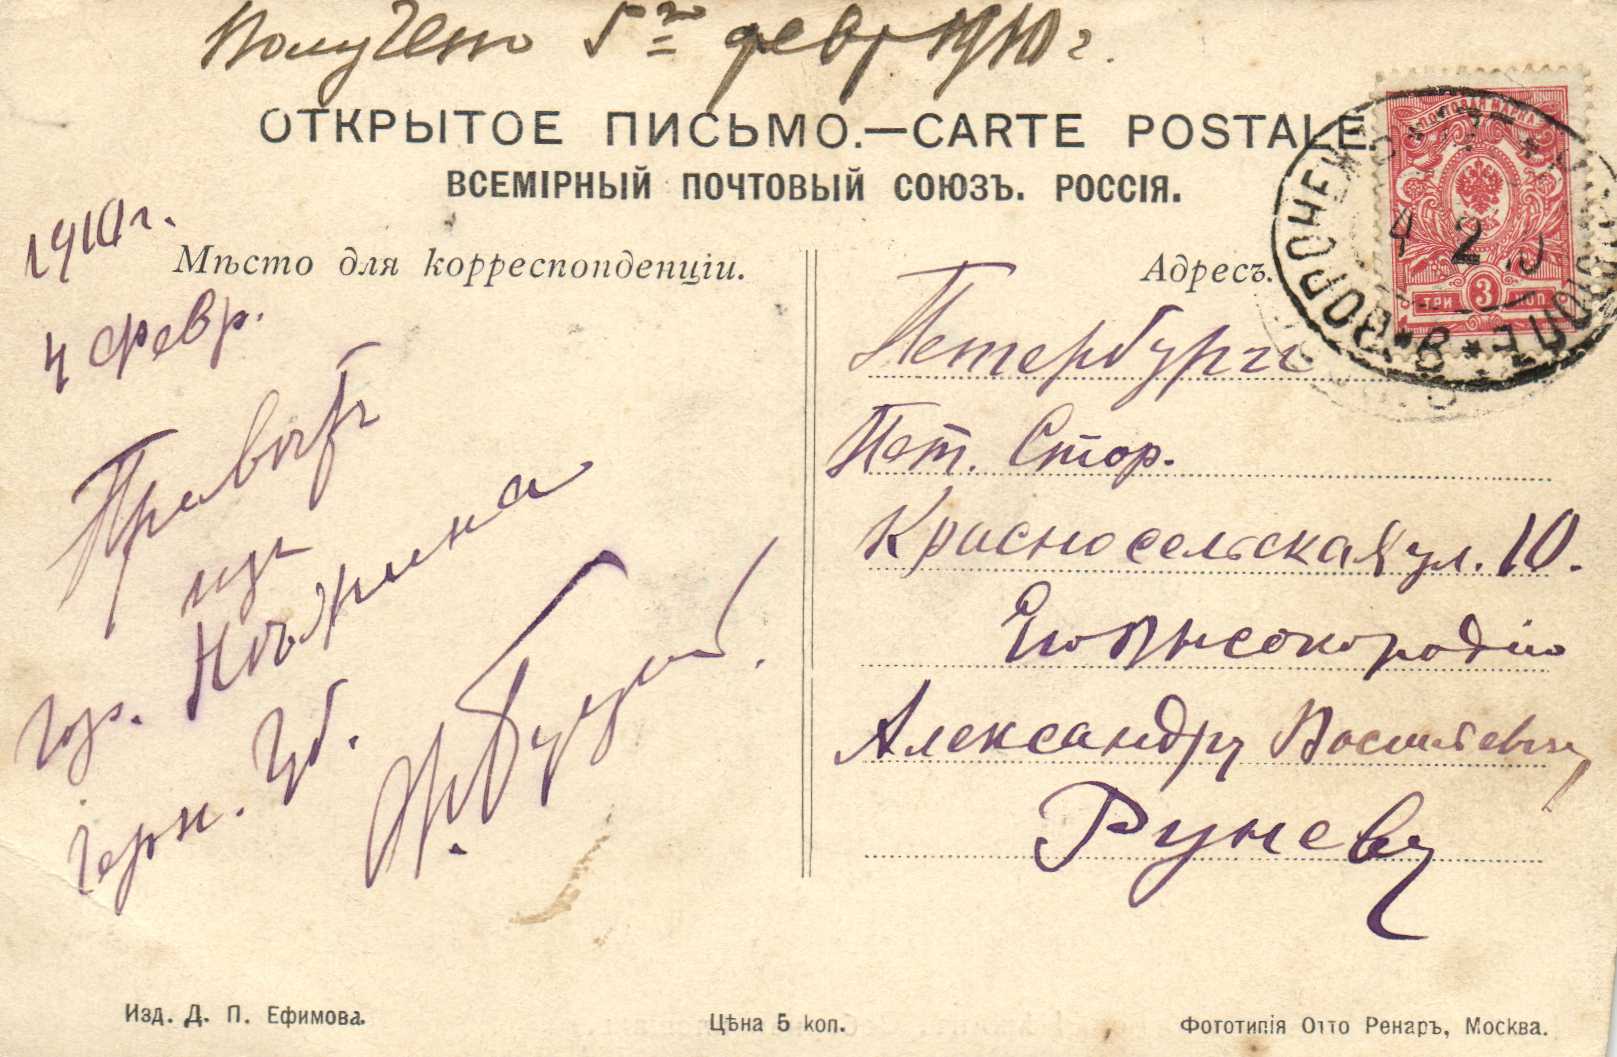 Получено 5го февр 1910 г.
ОТКРЫТОЕ ПИСЬМО.—CARTE POSTALE.
ВСЕМІРНЫЙ ПОЧТОВЫЙ СОЮЗЪ. РОССІЯ.
1910 г.
4 февр.
Мѣсто для корреспонденціи.
Привѣтъ
изъ
гор. Нѣжина
Черн. губ.
Адресъ.
Петербургъ
Пет. Стор.
Красносельская ул. 10.
Его Высокородію
Александру Васильевичу
Руневу
ТРИ 3 КОП.
4 2 10
Изд. Д. П. Ефимова.
Цѣна 5 коп.
Фототипія Отто Ренаръ, Москва.